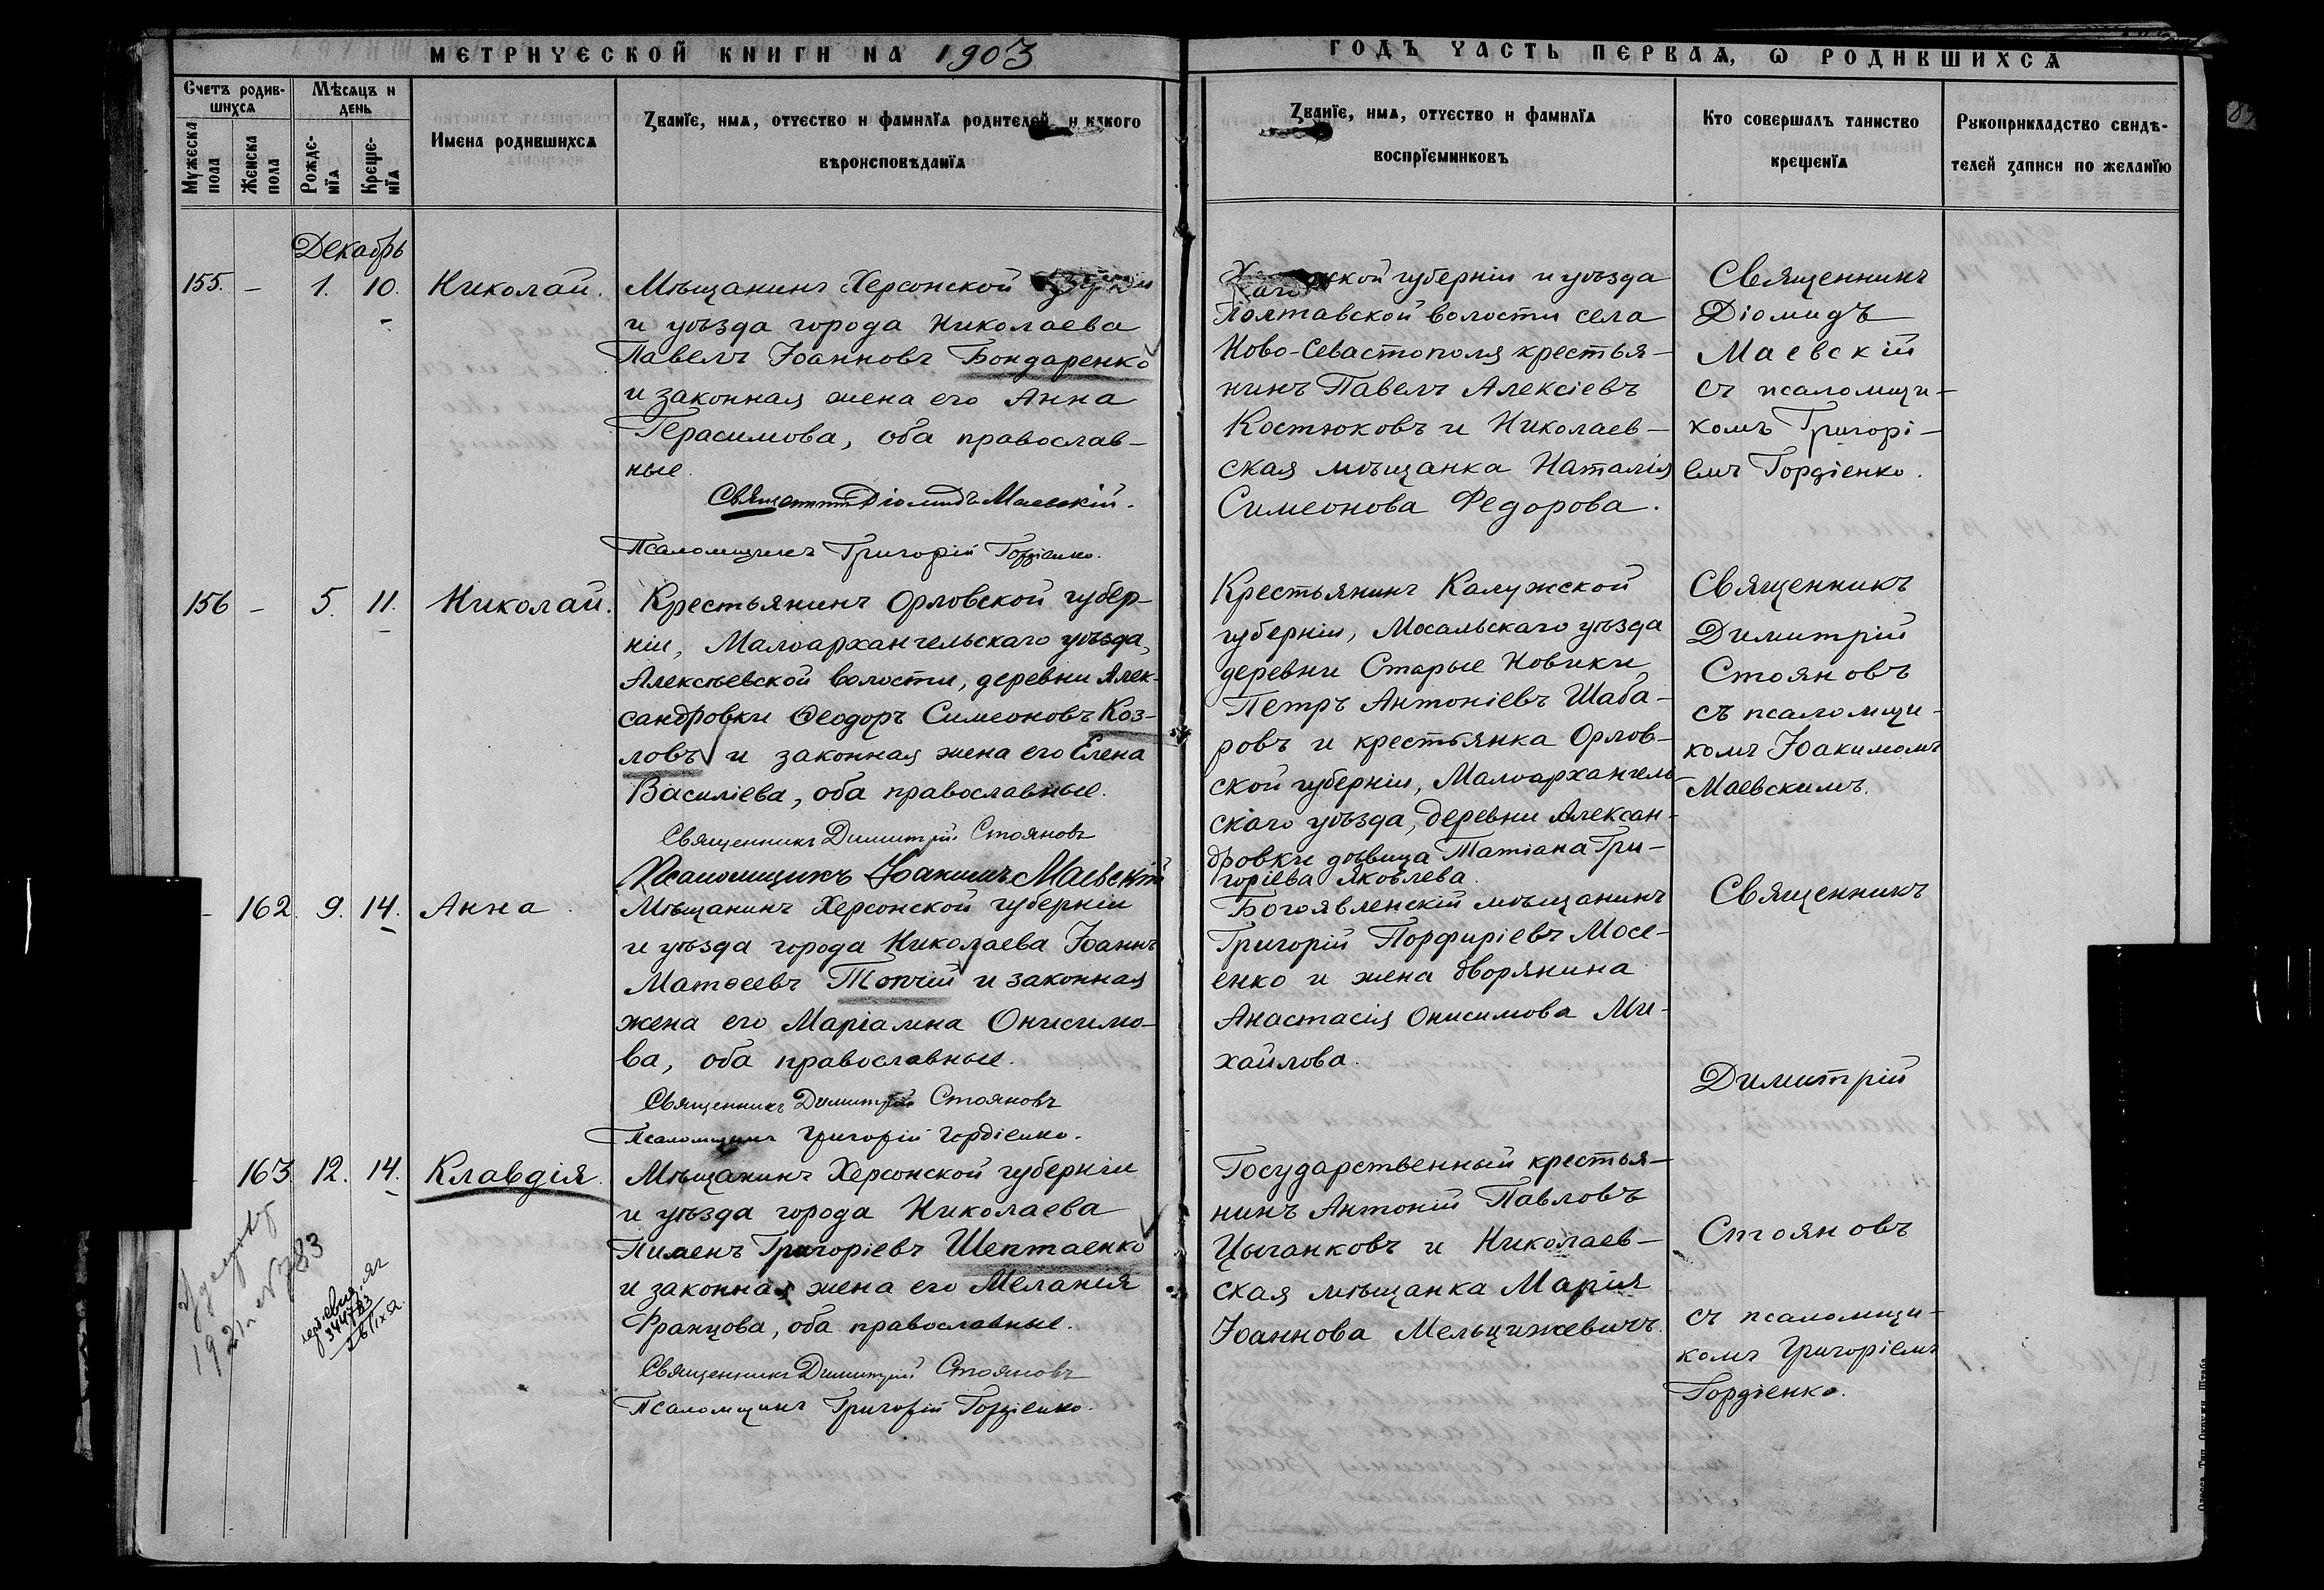 МЕТРИЧЕСКОЙ КНИГИ НА 1903
ГОДЪ ЧАСТЬ ПЕРВАЯ, Ѡ РОДИВШИХСѦ
Счетъ родив-
шихсѧ
Мѣсѧцъ и
день
Мужеска
пола
Женска
пола
Рожде-
нїѧ
Креще-
нїѧ
Имена родившихсѧ
Званїе, имѧ, отчество и фамилїѧ родителей и какого
вѣроисповѣданїѧ
Званїе, имѧ, отчество и фамилїѧ
воспрїемниковъ
Кто совершалъ таинство
крещенїѧ
Рукоприкладство свидѣ-
телей записи по желанїю
Декабрь
155. – 1. 10. Николай.
Мѣщанинъ Херсонской
и уѣзда города Николаева
Павелъ Іоанновъ Бондаренко
и законная жена его Анна
Герасимова, оба православ-
ные.
Священникъ Діомидъ Маевскій.
Псаломщикъ Григорій Гордіенко.
ской губерніи и уѣзда
Полтавской волости села
Ново-Севастополя крестья-
нинъ Павелъ Алексіевъ
Костюковъ и Николаев-
ская мѣщанка Наталія
Симеонова Федорова.
Священникъ
Діомидъ
Маевскій
съ псаломщи-
комъ Григорі-
емъ Гордіенко.
156 – 5. 11. Николай.
Крестьянинъ Орловской губер-
ніи, Малоархангельскаго уѣзда,
Алексѣевской волости, деревни Алек-
сандровки Ѳеодоръ Симеоновъ Коз-
ловъ и законная жена его Елена
Василіева, оба православные.
Священникъ Димитрій Стояновъ
Псаломщикъ Іоакимъ Маевскій
Крестьянинъ Калужской
губерніи, Мосальскаго уѣзда
деревни Старые Новики
Петръ Антоніевъ Шаба-
ровъ и крестьянка Орлов-
ской губерніи, Малоархангель-
скаго уѣзда, деревни Алексан-
дровки дѣвица Татіана Гри-
горіева Яковлева.
Священникъ
Димитрій
Стояновъ
съ псаломщи-
комъ Іоакимомъ
Маевскимъ.
– 162. 9. 14. Анна.
Мѣщанинъ Херсонской губерніи
и уѣзда города Николаева Іоаннъ
Матѳеевъ Топчій и законная
жена его Маріамна Онисимо-
ва, оба православные.
Священникъ Димитрій Стояновъ
Псаломщикъ Григорій Гордіенко.
Богоявленскій мѣщанинъ
Григорій Порфиріевъ Мосе-
енко и жена дворянина
Анастасія Онисимова Ми-
хайлова.
Священникъ
Димитрій
Стояновъ
съ псаломщи-
комъ Григоріемъ
Гордіенко.
163 12. 14. Клавдія.
Мѣщанинъ Херсонской губерніи
и уѣзда города Николаева
Пименъ Григоріевъ Шептаенко
и законная жена его Меланія
Францова, оба православные.
Священникъ Димитрій Стояновъ
Псаломщикъ Григорій Гордіенко.
Государственный крестья-
нинъ Антоній Павловъ
Цыганковъ и Николаев-
ская мѣщанка Марія
Іоаннова Мельцижевичъ.
1921 г. №783